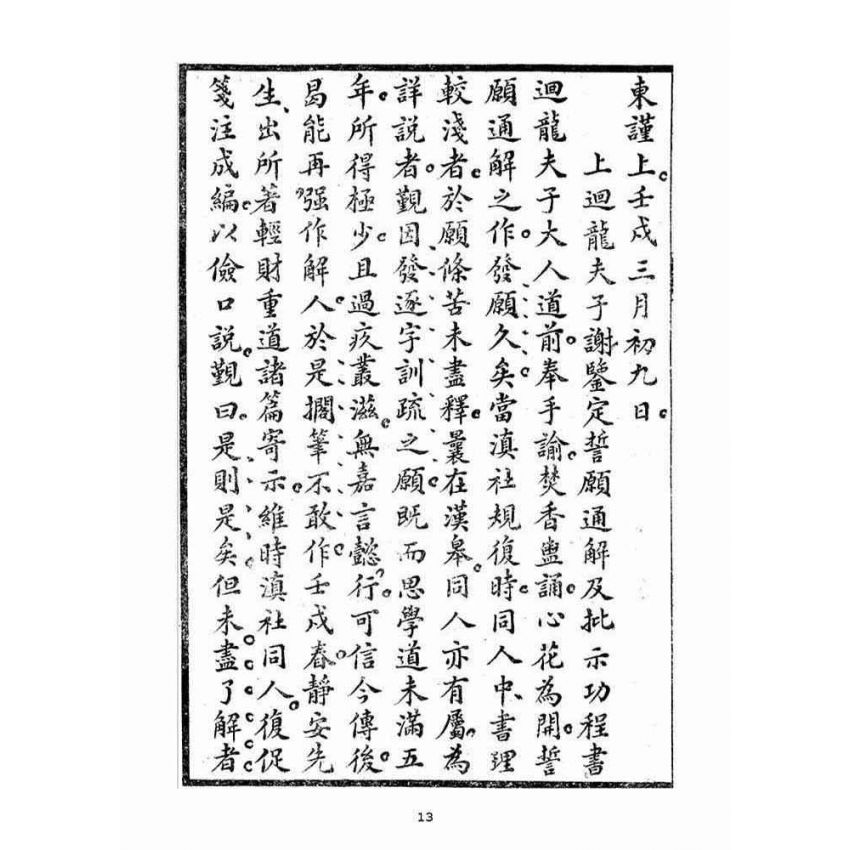 東謹上。壬戌三月初九日。
上迴龍夫子謝鑒定誓願通解及批示功程書
迴龍夫子大人道前。奉手諭。焚香盥誦。心花為開。誓
願通解之作。發願久矣。當滇社規復時。同人中、書理
較淺者。於願條苦未盡釋。曩在漢皋。同人亦有屬為
詳說者。覲因發逐字訓疏之願。既而思學道未滿五
年。所得極少。且過疚叢滋。無嘉言懿行。可信今傳後。
曷能再强作解人。於是擱筆不敢作。壬戌春。靜安先
生、出所著輕財重道諸篇寄示。維時滇社同人。復促
箋注成編。以儉口說。覲曰。是則是矣。但未盡了解者
13